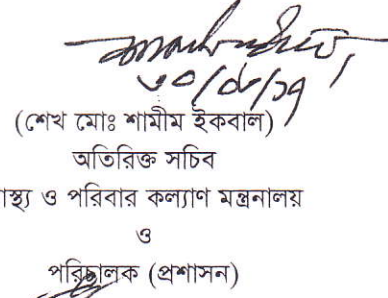 (শেখ মোঃ শামীম ইকবাল)
অতিরিক্ত সচিব
স্থ্য ও পরিবার কল্যাণ মন্ত্রনালয়
ও
পরিচালক (প্রশাসন)